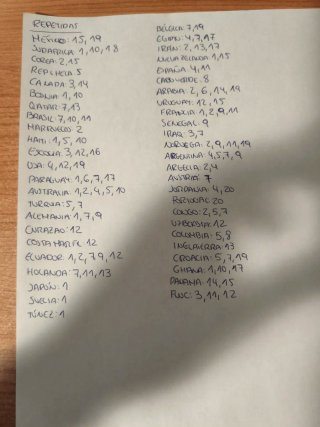 REPETIDAS
MÉXICO: 15, 19
SUDAFRICA: 1, 10, 18
COREA: 2, 15
REP CHECA: 5
CANADA: 3, 14
BOSNIA: 1, 10
QATAR: 7, 13
BRASIL: 7, 10, 11
MARRUECOS: 2
HAITI: 1, 5, 10
ESCOCIA: 3, 12, 16
USA: 4, 12, 19
PARAGUAY: 1, 6, 7, 17
AUSTRALIA: 1, 2, 4, 5, 10
TURQUIA: 5, 7
ALEMANIA: 1, 7, 9
CURAZAO: 12
COSTA MARFIL: 12
ECUADOR: 1, 2, 7, 9, 12
HOLANDA: 7, 11, 13
JAPÓN: 1
SUECIA: 1
TÚNEZ: 1
BÉLGICA: 7, 19
EGIPTO: 4, 7, 17
IRÁN: 2, 13, 17
NUEVA ZELANDA: 1, 15
ESPAÑA: 4, 11
CABO VERDE: 8
ARABIA: 2, 6, 14, 19
URUGUAY: 12, 15
FRANCIA: 1, 2, 9, 11
SENEGAL: 9
IRAQ: 3, 7
NORUEGA: 2, 9, 11, 19
ARGENTINA: 4, 5, 7, 9
ARGELIA: 2, 4
AUSTRIA: 7
JORDANIA: 4, 20
PORTUGAL: 20
CONGO: 2, 5, 7
UZBEKISTÁN: 12
COLOMBIA: 5, 8
INGLATERRA: 13
CROACIA: 5, 7, 19
GHANA: 1, 10, 17
PANAMA: 14, 15
FWC: 3, 11, 12